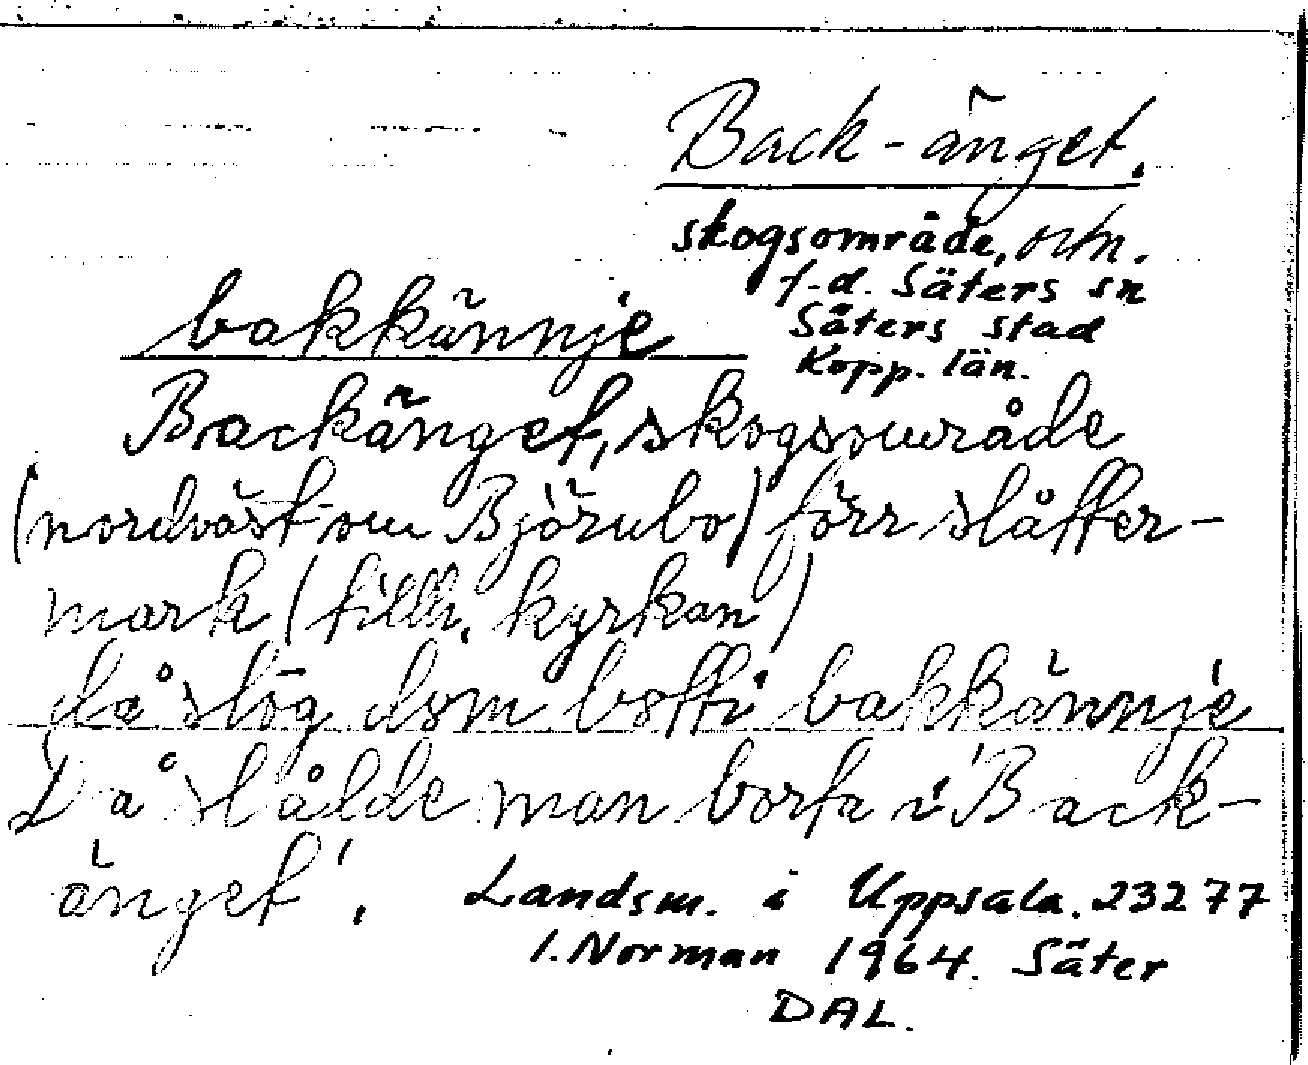 Back-änget.
skogsområde, otn.
f.d. Säters sn
Säters stad
Kopp. län.
bakkännje
Backänget, skogsområde
(nordväst om Björnbo) förr slåtter-
mark (tillh. kyrkan)
då slōg dom botti bakkännje
Då slålde man borta i 'Back-
änget'.
Landsm. i Uppsala. 23277
I. Norman 1964. Säter
DAL.